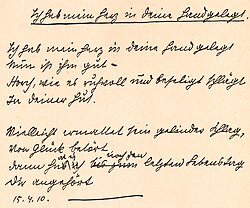 Ich hab mein Herz in deine Hand gelegt.
Ich hab mein Herz in deine Hand gelegt
Nun ist ihm gut –
Horch, wie es ruhvoll und beseligt schlägt
In deiner Hut.
Vielleicht ermattet sein gelinder Schlag,
Von Glück betört
dann bis zum letzten Lebenstag
Dir angehört
15.4.10.